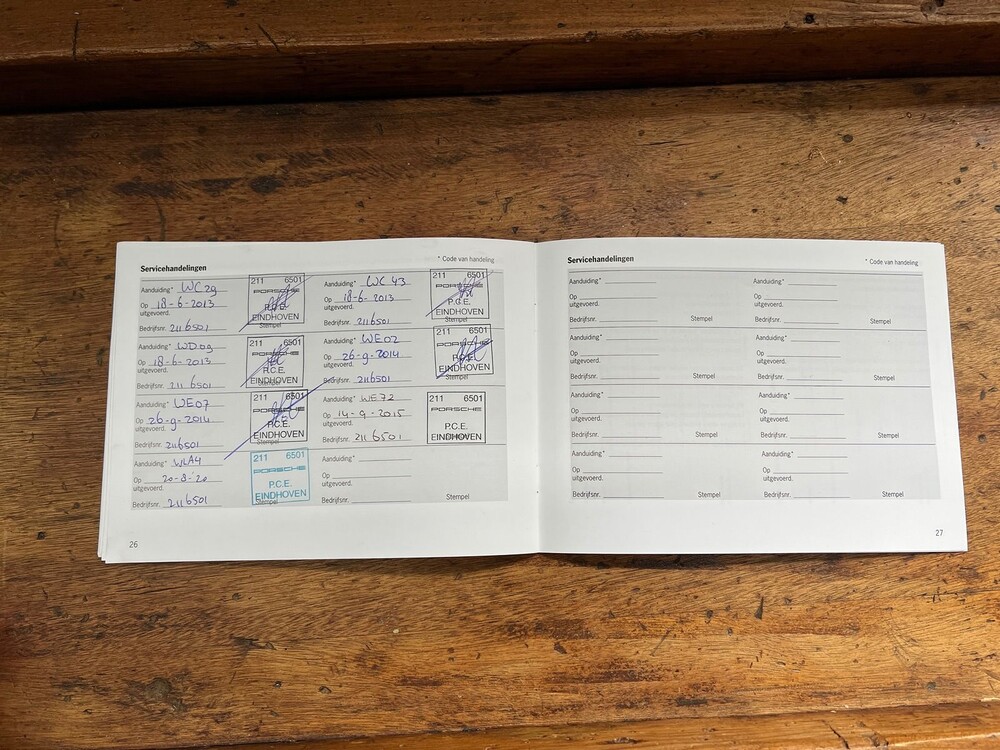 Servicehandelingen
* Code van handeling
Aanduiding* WC29
Op 18-6-2013
uitgevoerd.
Bedrijfsnr. 2116501
211 6501
PORSCHE
P.C.E.
EINDHOVEN
Stempel
Aanduiding* WC43
Op 18-6-2013
uitgevoerd.
Bedrijfsnr. 2116501
211 6501
PORSCHE
P.C.E.
EINDHOVEN
Stempel
Aanduiding* WD09
Op 18-6-2013
uitgevoerd.
Bedrijfsnr. 2116501
211 6501
PORSCHE
P.C.E.
EINDHOVEN
Stempel
Aanduiding* WE02
Op 26-9-2014
uitgevoerd.
Bedrijfsnr. 2116501
211 6501
PORSCHE
P.C.E.
EINDHOVEN
Stempel
Aanduiding* WE07
Op 26-9-2014
uitgevoerd.
Bedrijfsnr. 2116501
211 6501
PORSCHE
P.C.E.
EINDHOVEN
Stempel
Aanduiding* WE72
Op 14-9-2015
uitgevoerd.
Bedrijfsnr. 2116501
211 6501
PORSCHE
P.C.E.
EINDHOVEN
Stempel
Aanduiding* WLA4
Op 20-8-'20
uitgevoerd.
Bedrijfsnr. 2116501
211 6501
PORSCHE
P.C.E.
EINDHOVEN
Stempel
Aanduiding*
Op
uitgevoerd.
Bedrijfsnr. Stempel
26
Servicehandelingen
* Code van handeling
Aanduiding*
Op
uitgevoerd.
Bedrijfsnr. Stempel
Aanduiding*
Op
uitgevoerd.
Bedrijfsnr. Stempel
Aanduiding*
Op
uitgevoerd.
Bedrijfsnr. Stempel
Aanduiding*
Op
uitgevoerd.
Bedrijfsnr. Stempel
Aanduiding*
Op
uitgevoerd.
Bedrijfsnr. Stempel
Aanduiding*
Op
uitgevoerd.
Bedrijfsnr. Stempel
Aanduiding*
Op
uitgevoerd.
Bedrijfsnr. Stempel
Aanduiding*
Op
uitgevoerd.
Bedrijfsnr. Stempel
27